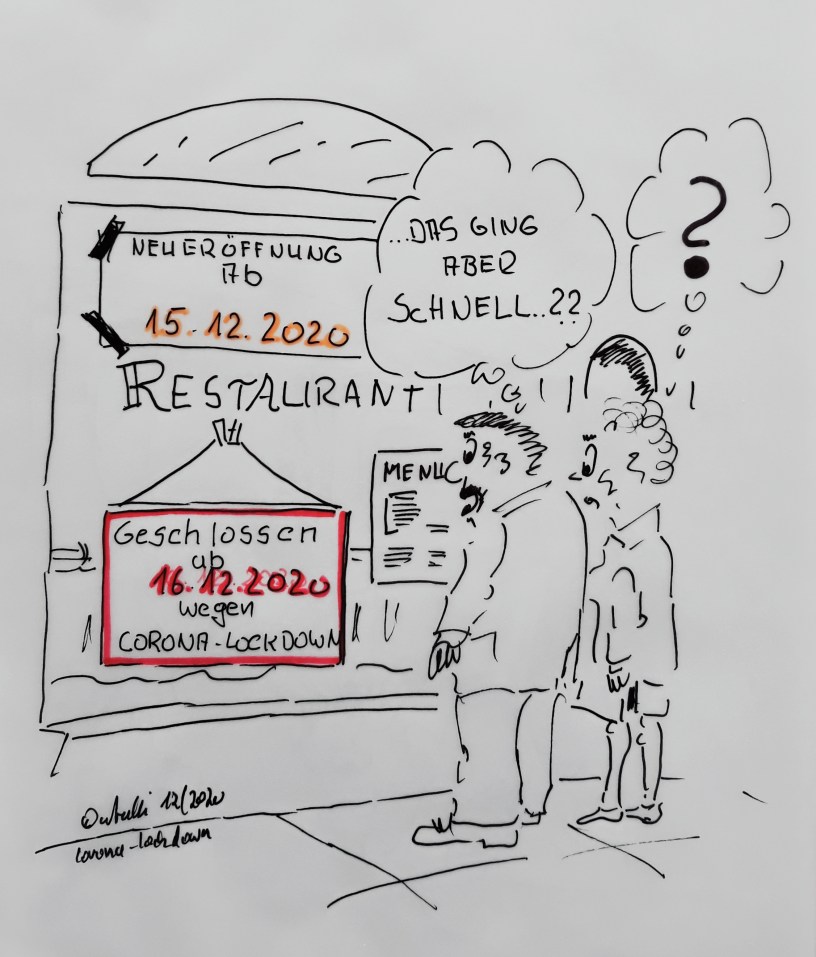 NEUERÖFFNUNG
Ab
15.12.2020
...DAS GING
ABER
SCHNELL..??
?
RESTAURANT
MENUE
Geschlossen
ab
16.12.2020
wegen
CORONA-LOCKDOWN
12/2020
Corona-Lockdown